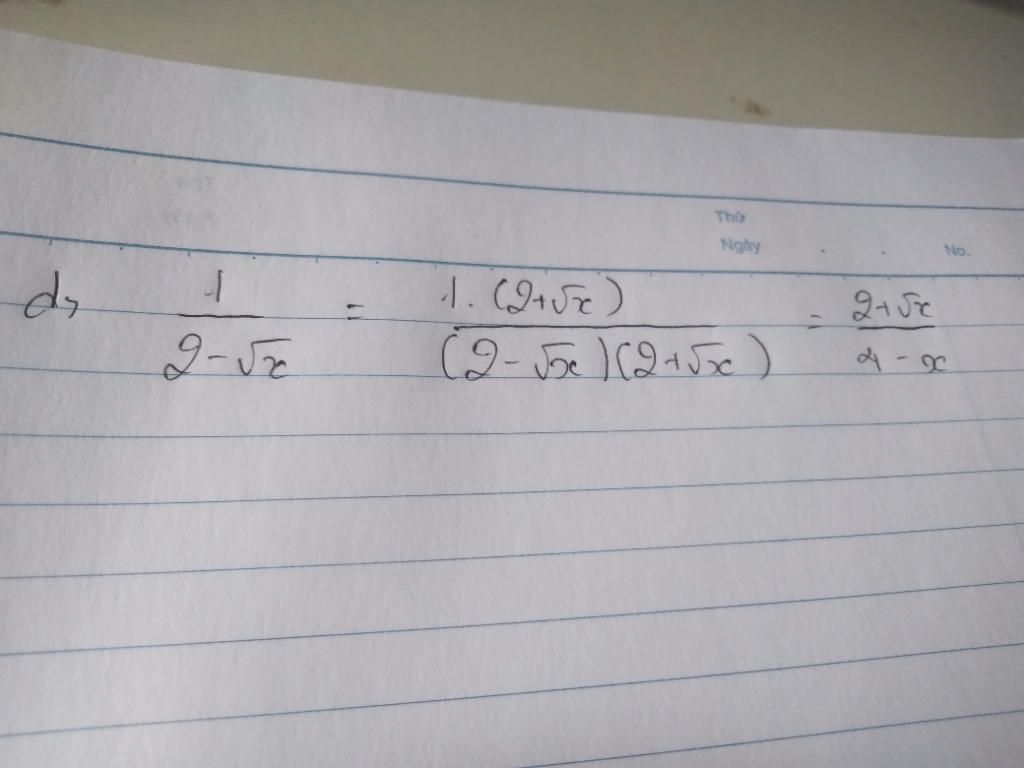 Thứ
Ngày . . No.
d, 1/(2-√x) = 1.(2+√x)/((2-√x)(2+√x)) = (2+√x)/(4-x)